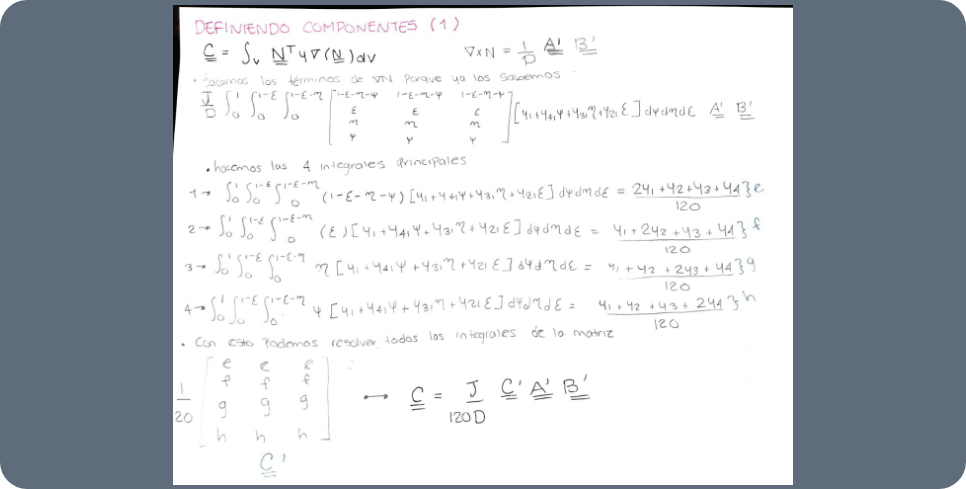 DEFINIENDO COMPONENTES (1)
C = ∫v Nᵀ y ∇(N) dv    ∇×N = 1/D A' B'
• Sacamos los términos de ∇N porque ya los sabemos.
J/D ∫₀¹ ∫₀^(1-ε) ∫₀^(1-ε-η) [1-ε-η-ψ 1-ε-η-ψ 1-ε-η-ψ] [y₁+y₄₁ψ+y₃₁η+y₂₁ε] dψdηdε A' B'
ε ε ε
η η η
ψ ψ ψ
• hacemos las 4 integrales principales
1→ ∫₀¹ ∫₀^(1-ε) ∫₀^(1-ε-η) (1-ε-η-ψ) [y₁+y₄₁ψ+y₃₁η+y₂₁ε] dψdηdε = 2y₁+y₂+y₃+y₄ } e
120
2→ ∫₀¹ ∫₀^(1-ε) ∫₀^(1-ε-η) (ε) [y₁+y₄₁ψ+y₃₁η+y₂₁ε] dψdηdε = y₁+2y₂+y₃+y₄ } f
120
3→ ∫₀¹ ∫₀^(1-ε) ∫₀^(1-ε-η) η [y₁+y₄₁ψ+y₃₁η+y₂₁ε] dψdηdε = y₁+y₂+2y₃+y₄ } g
120
4→ ∫₀¹ ∫₀^(1-ε) ∫₀^(1-ε-η) ψ [y₁+y₄₁ψ+y₃₁η+y₂₁ε] dψdηdε = y₁+y₂+y₃+2y₄ } h
120
• Con esto podemos resolver todas las integrales de la matriz
e e e
f f f
1/20 g g g → C = J/120D C' A' B'
h h h
C'